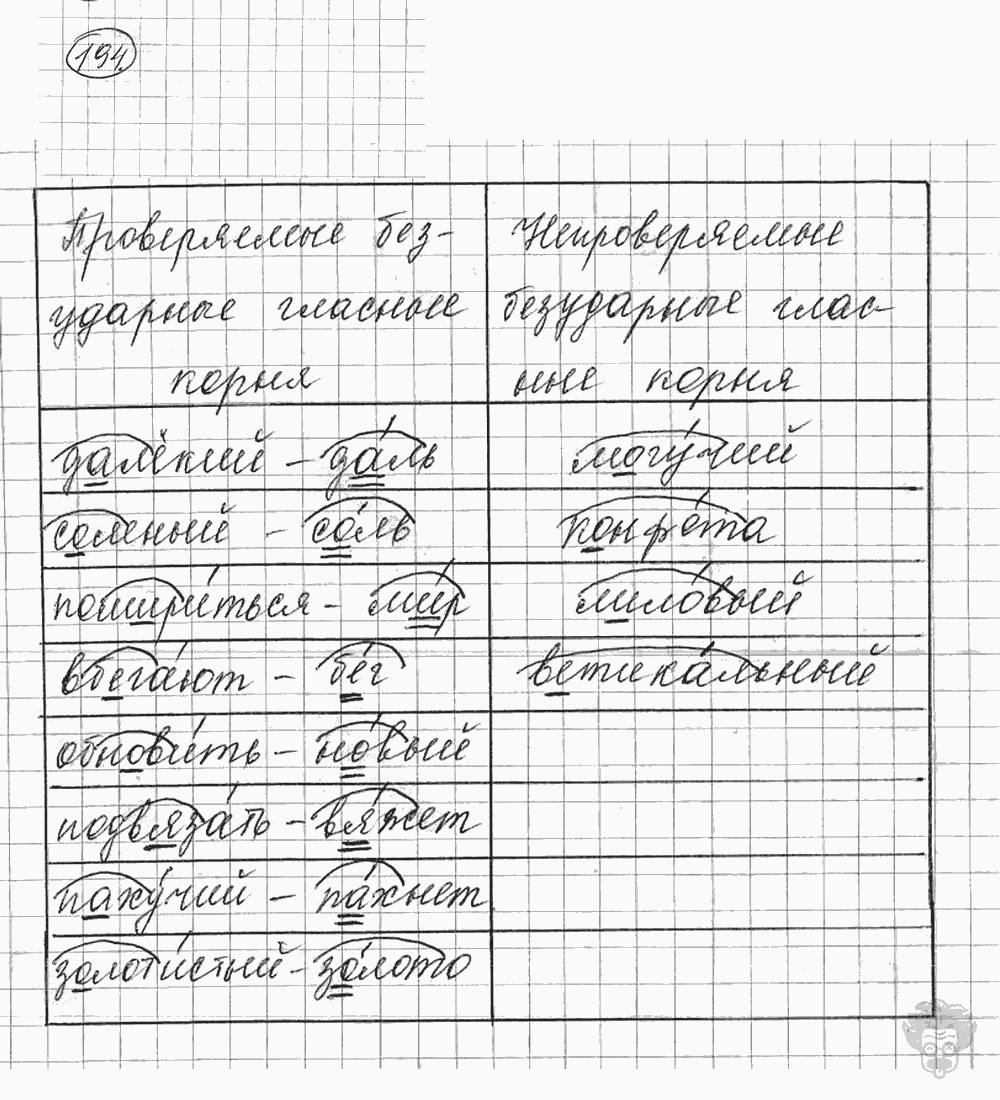 194.
Проверяемые без- Непроверяемые
ударные гласные безударные глас-
корня ные корня
далёкий – да́ль могу́чий
соленый – со́ль конфе́та
помири́ться – ми́р лило́вый
вбега́ют – бе́г ветика́льный
обнови́ть – но́вый
подвяза́ть – вя́жет
паху́чий – па́хнет
золоти́стый – зо́лото